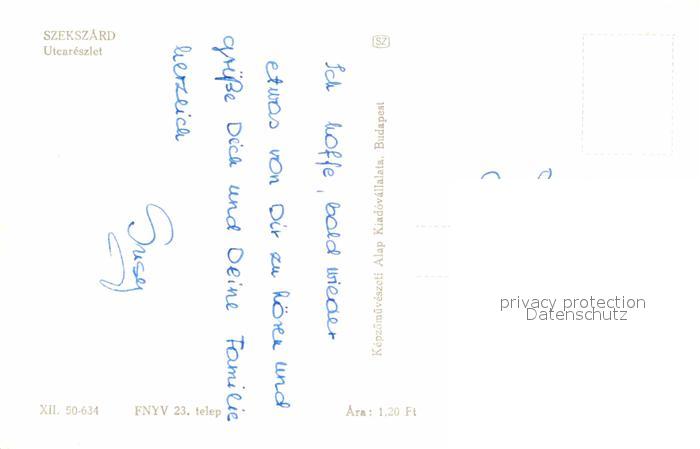 SZEKSZÁRD
Utcarészlet
Ich hoffe, bald wieder
etwas von Dir zu hören und
grüße Dich und Deine Familie
herzlich
Susey
SZ
Képzőművészeti Alap Kiadóvállalata, Budapest
privacy protection
Datenschutz
XII. 50-634
FNYV 23. telep
Ára: 1,20 Ft